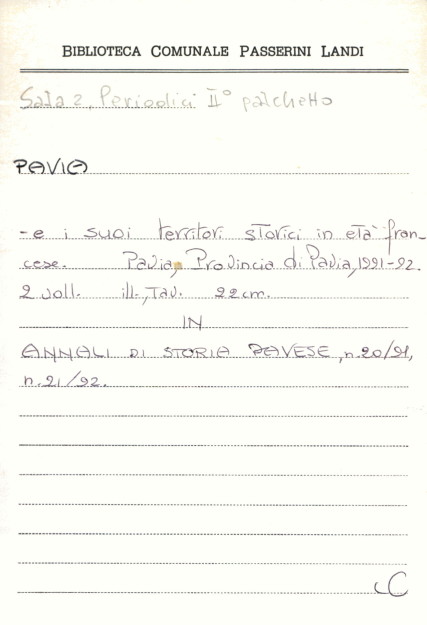 BIBLIOTECA COMUNALE PASSERINI LANDI
Sala 2, Periodici II° palchetto
PAVIA
- e i suoi territori storici in età fran-
cese. Pavia, Provincia di Pavia, 1991-92.
2 voll. ill., Tav. 22 cm.
IN
ANNALI DI STORIA PAVESE, n. 20/91,
n. 21/92.